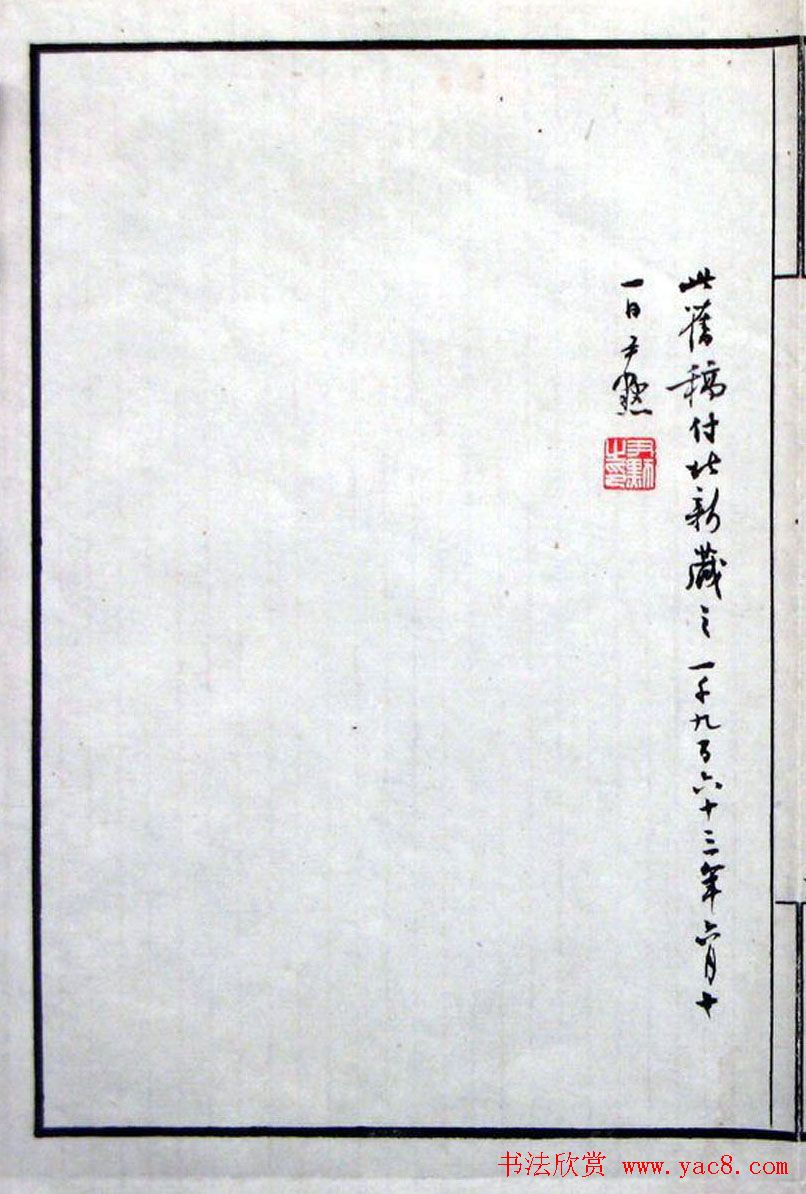 此舊稿付北新藏之一千九百六十三年六月十
一日尹默
尹默之印
书法欣赏 www.yac8.com